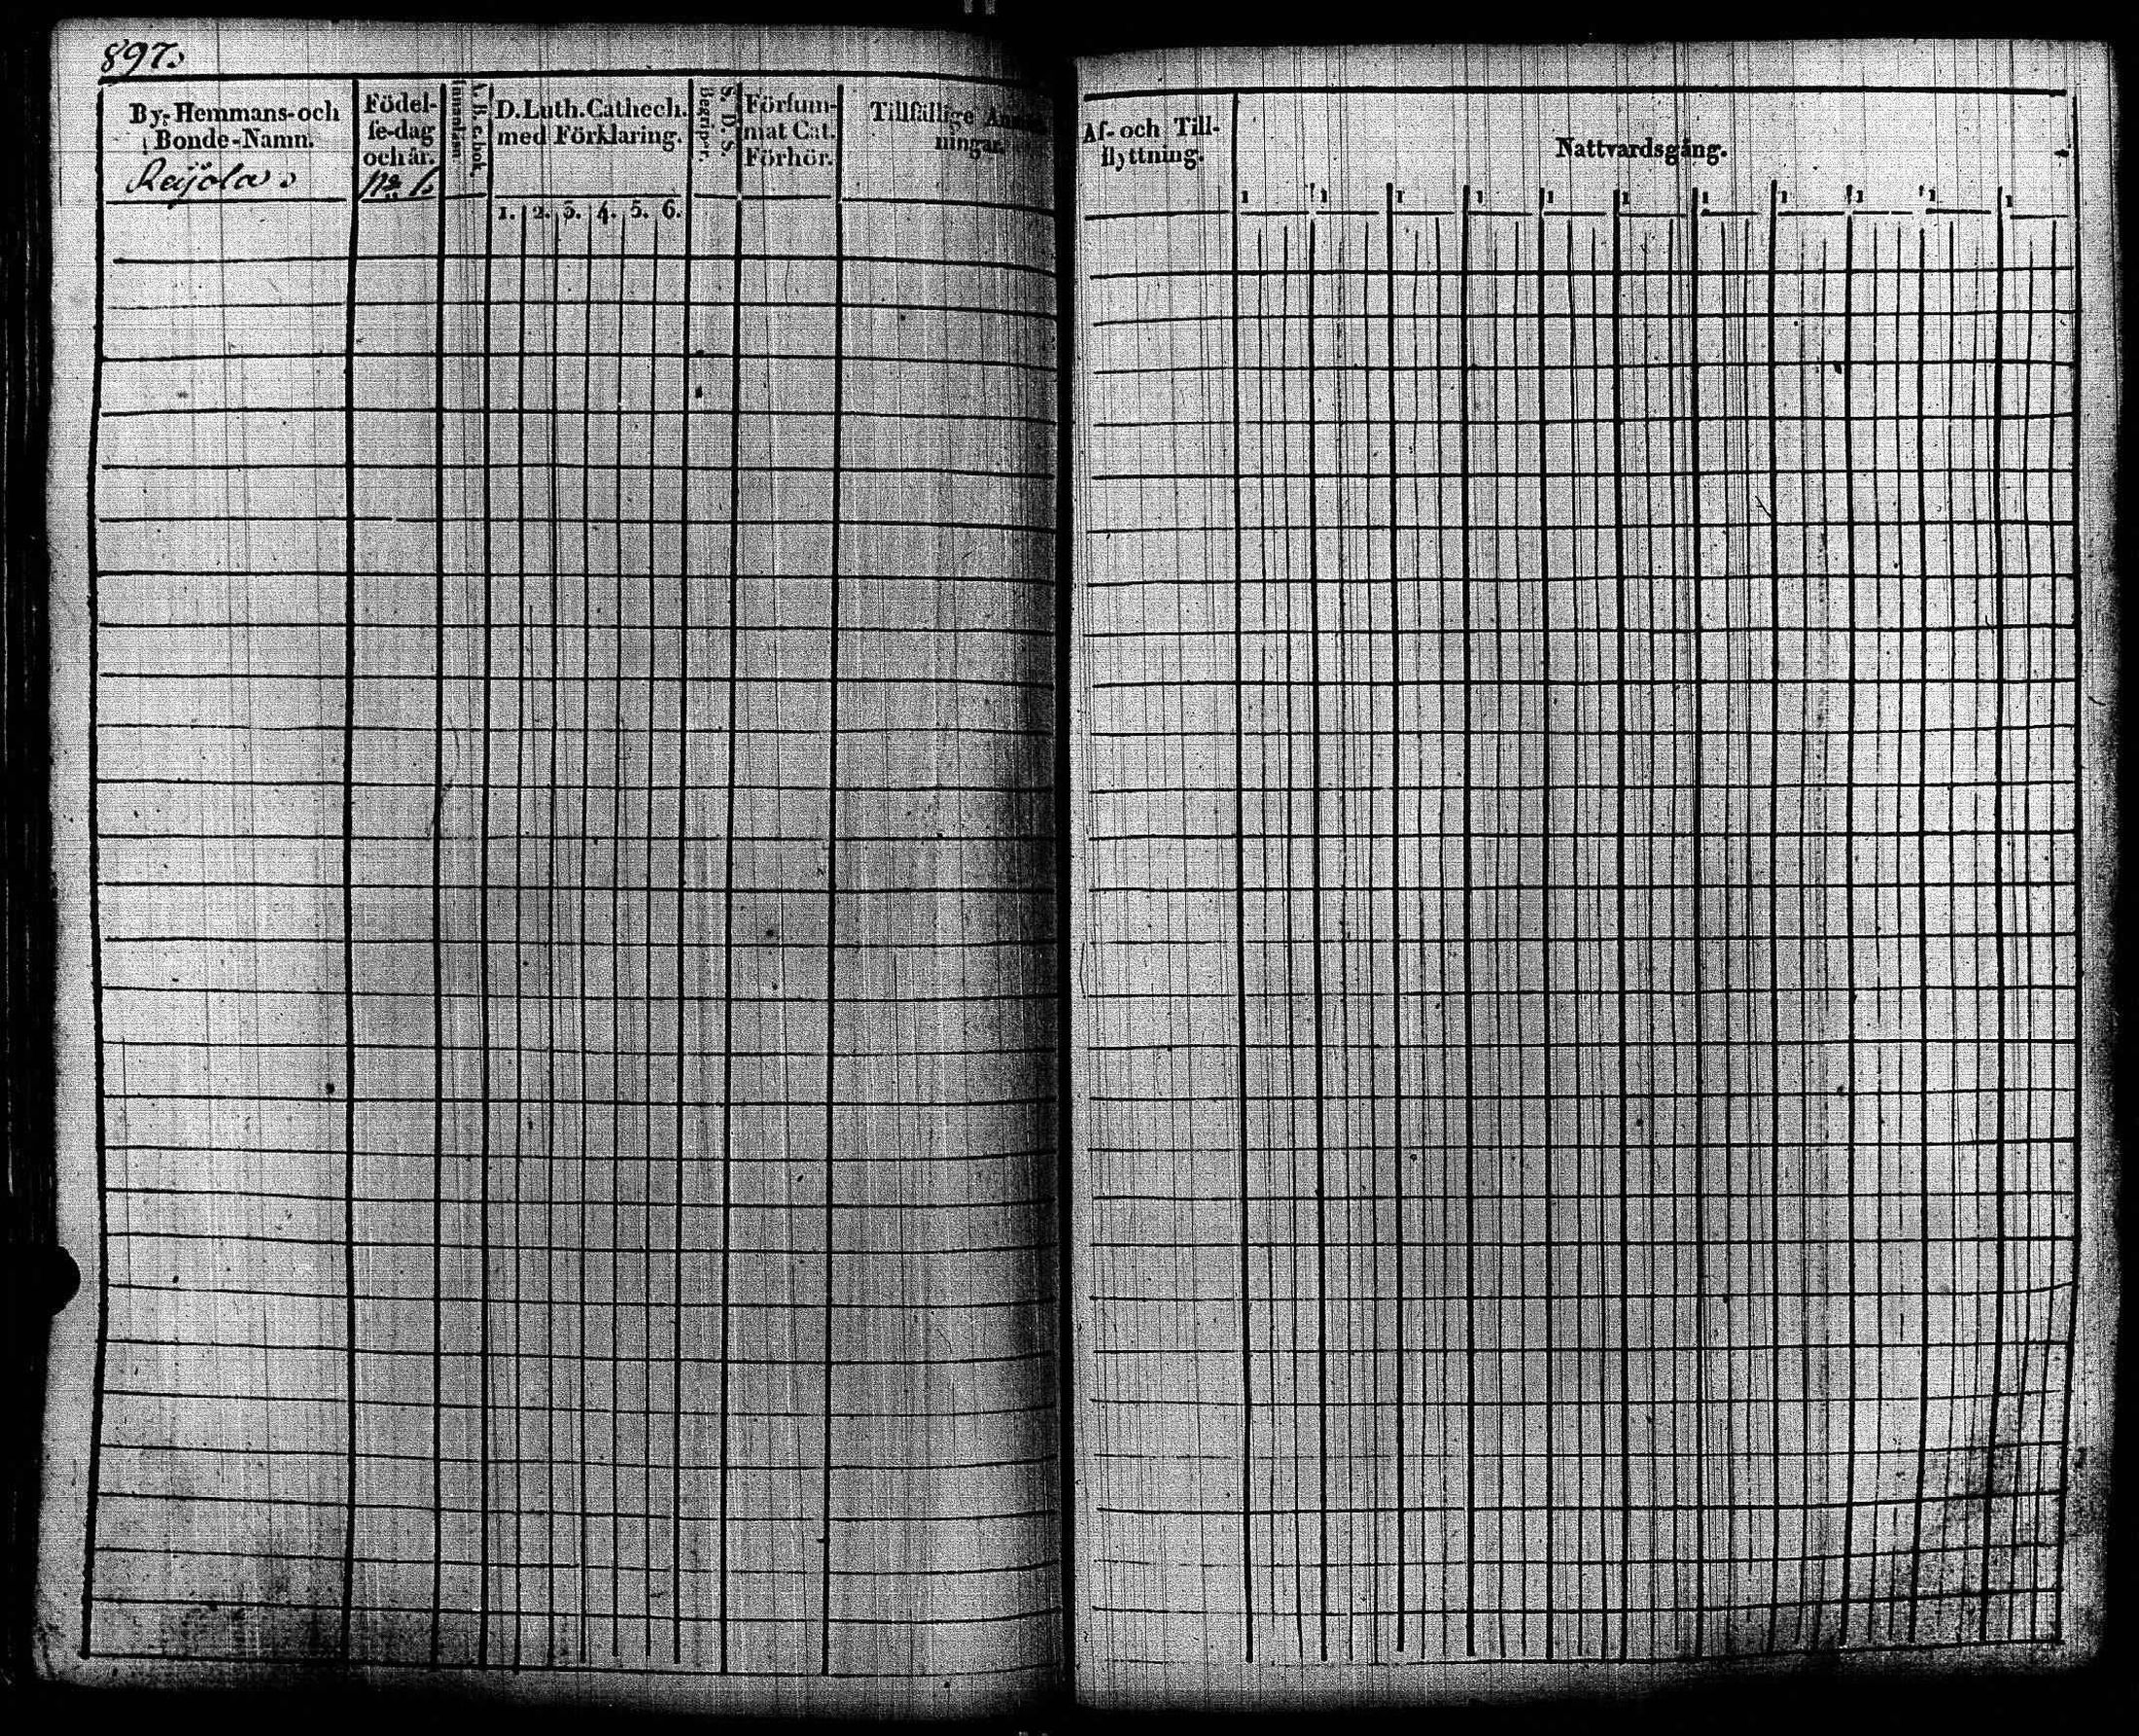 897.
By- Hemmans- och
Bonde-Namn.
Reijola.
Födel-
se-dag
och år.
No 6.
Innanläsn.
A. B. C. bok.
D. Luth. Cathech.
med Förklaring.
1. 2. 3. 4. 5. 6.
S. D. S.
Begrip-r.
Försum-
mat Cat.
Förhör.
Tillfällige Anmärk-
ningar.
Af- och Till-
flyttning.
Nattvardsgång.
1 1 1 1 1 1 1 1 1 1 1